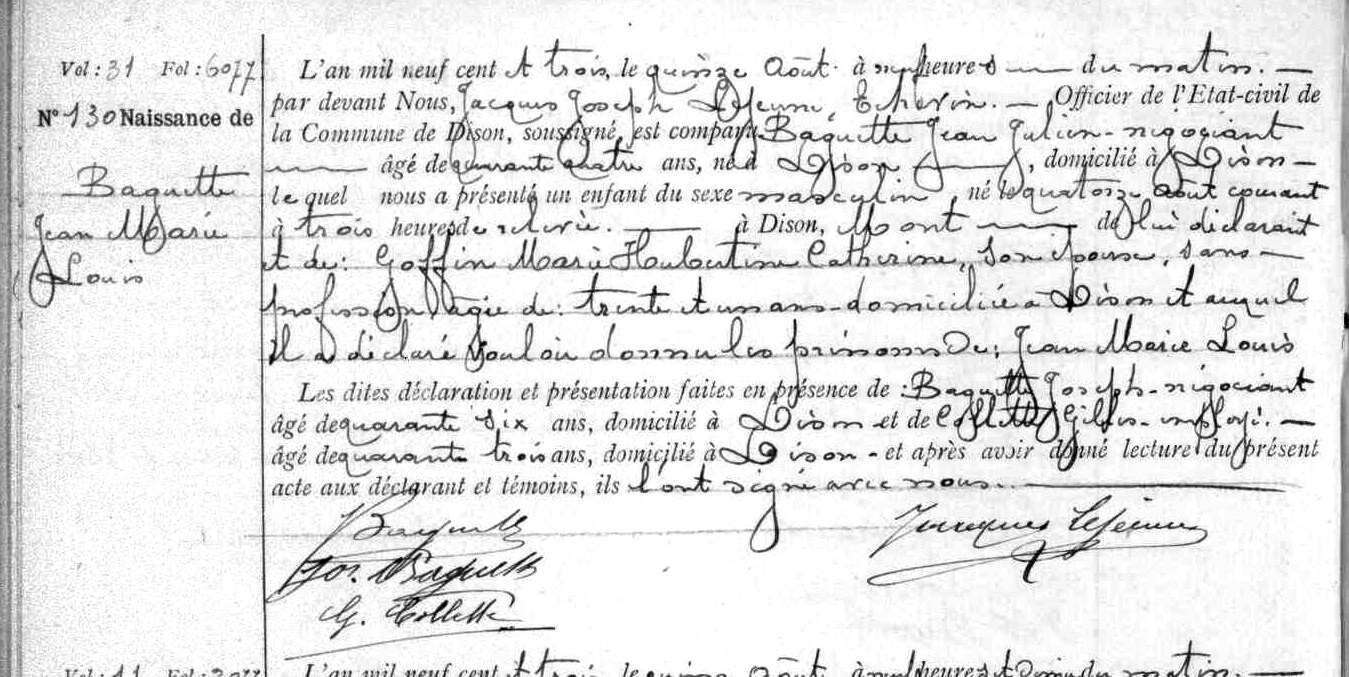 Vol : 31 Fol : 6077
N° 130 Naissance de
Baguette
Jean Marie
Louis
L'an mil neuf cent et trois, le quinze Août à neuf heures du matin. —
par devant Nous, Jacques Joseph Lejeune, Echevin. — Officier de l'Etat-civil de
la Commune de Dison, soussigné, est comparu Baguette Jean Julien - négociant
— âgé de quarante quatre ans, né à Dison —, domicilié à Dison —
lequel nous a présenté un enfant du sexe masculin, né le quatorze août courant
à trois heures de relevée. — à Dison, Mont — de lui déclarant
et de : Goffin Marie Hubertine Catherine, son épouse, sans —
profession âgée de : trente et un ans - domiciliée à Dison et auquel
il a déclaré vouloir donner les prénoms de : Jean Marie Louis
Les dites déclaration et présentation faites en présence de : Baguette Joseph - négociant
âgé de quarante six ans, domicilié à Dison et de Collette Gilles - employé. —
âgé de quarante trois ans, domicilié à Dison - et après avoir donné lecture du présent
acte aux déclarant et témoins, ils l'ont signé avec nous. —
J Baguette
Jacques Lejeune
Jos. Baguette
G. Collette
Vol : 11 Fol : 3077
L'an mil neuf cent et trois, le quinze août, à neuf heures et demie du matin. —